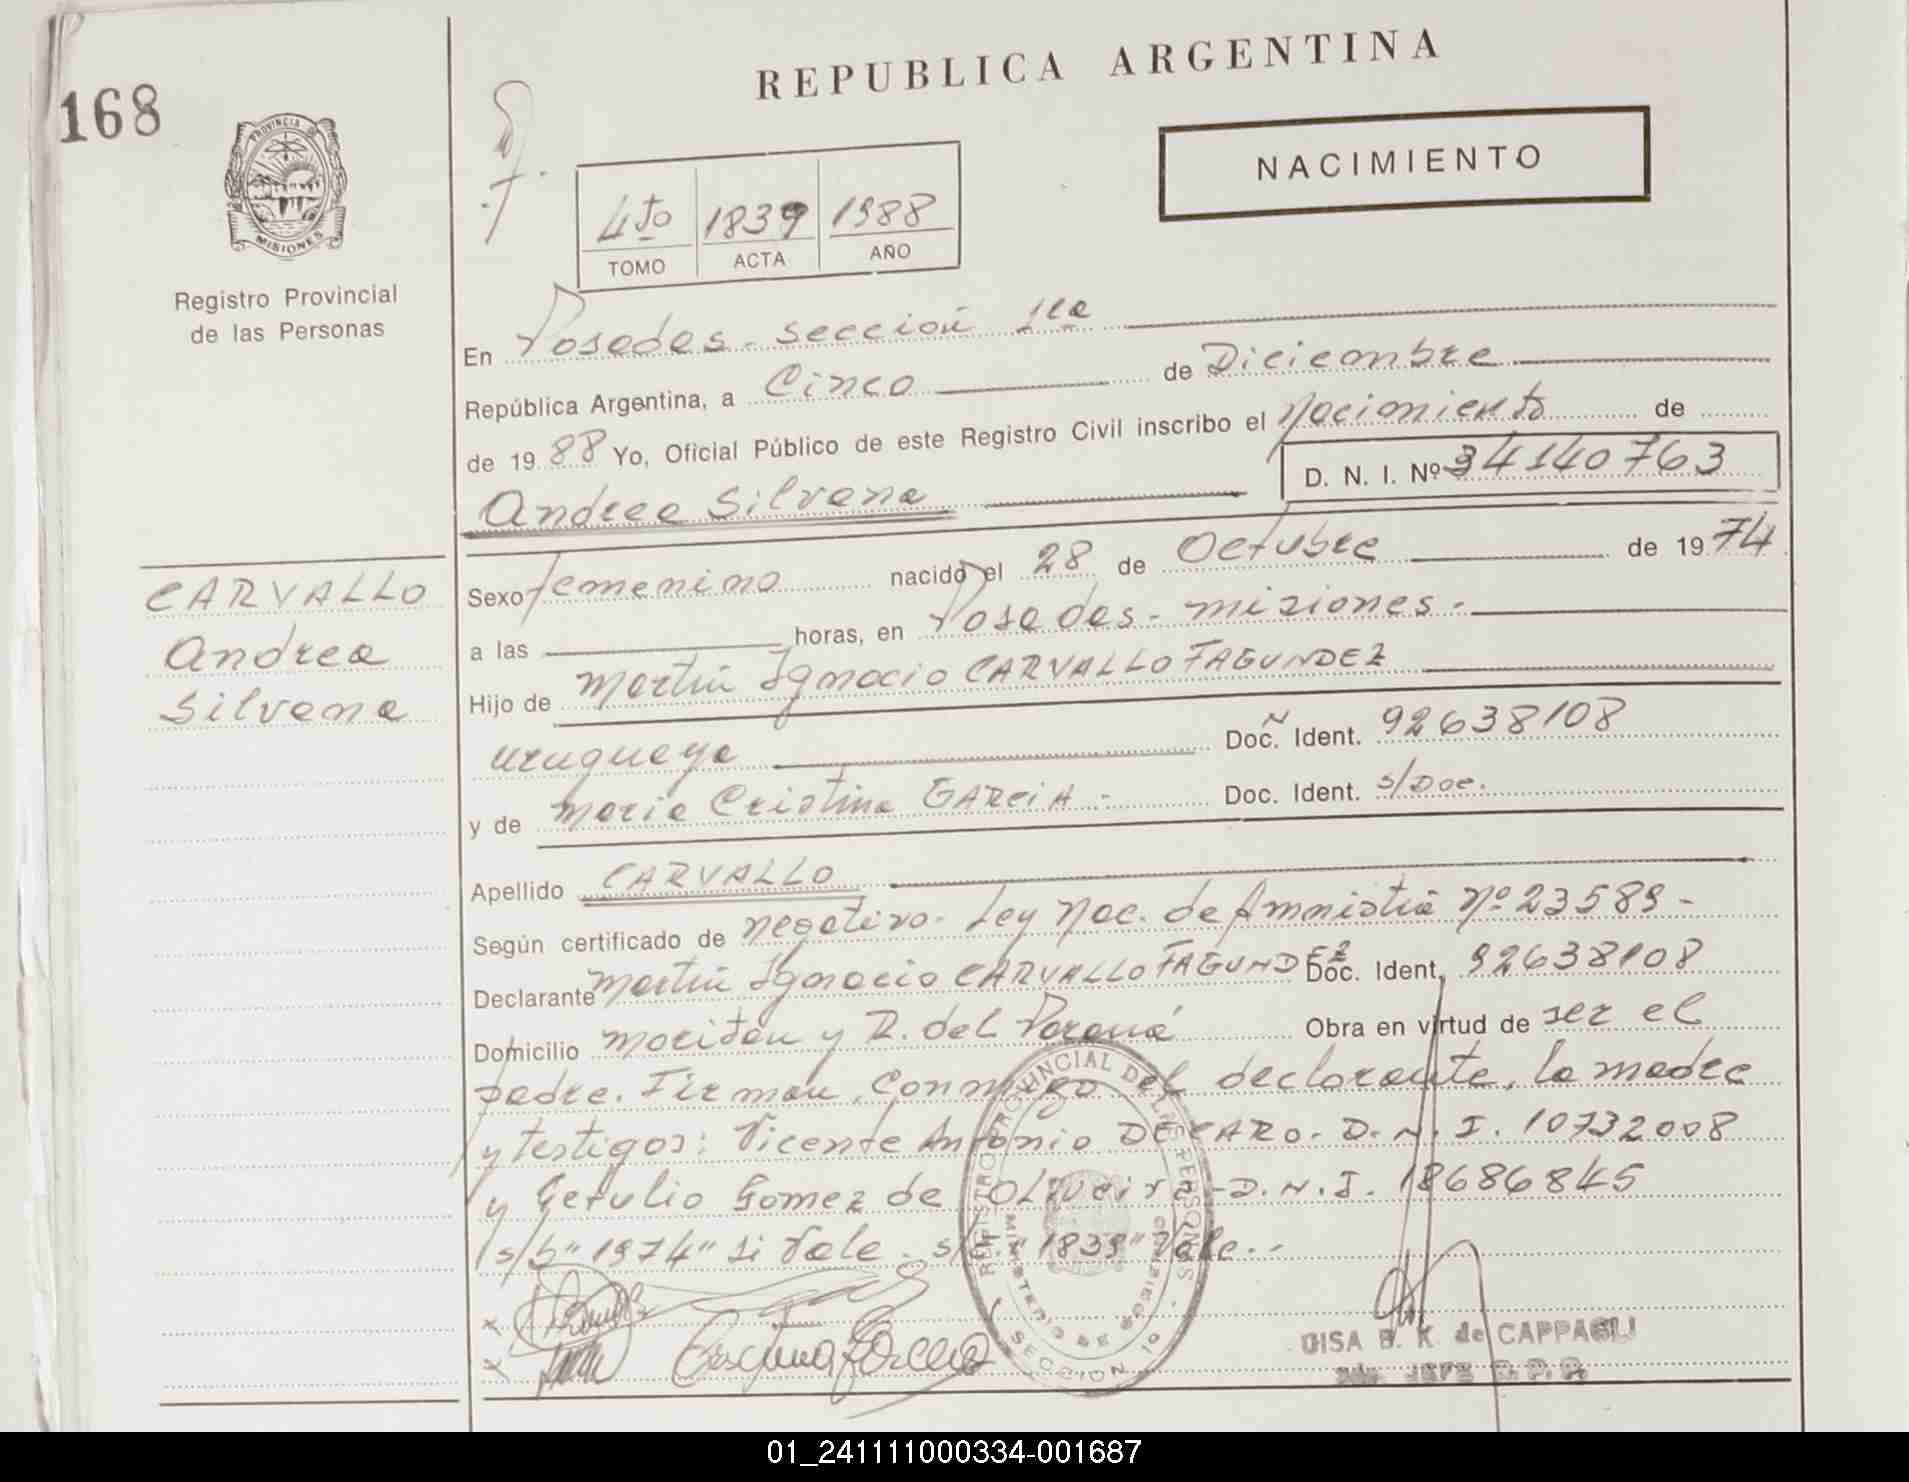 168
REPUBLICA ARGENTINA
NACIMIENTO
PROVINCIA DE
MISIONES
Registro Provincial
de las Personas
4to 1839 1988
TOMO ACTA AÑO
En Posadas - sección 1ra
República Argentina, a Cinco de Diciembre
de 1988 Yo, Oficial Público de este Registro Civil inscribo el nacimiento de
D. N. I. Nº 34140763
Andrea Silvana
CARVALLO
Andrea
Silvana
Sexo femenino nacido el 28 de Octubre de 1974
a las horas, en Posadas - misiones -
Hijo de Martín Ignacio CARVALLO FAGUNDEZ
uruguaya Doc. Ident. 92638108
y de María Cristina GARCIA - Doc. Ident. s/Doc.
Apellido CARVALLO
Según certificado de negativo - Ley Nac. de Amnistía Nº 23589 -
Declarante Martín Ignacio CARVALLO FAGUNDEZ Doc. Ident. 92638108
Domicilio y R. del Paraná Obra en virtud de ser el
padre. Firman, Conmigo el declarante, la madre
y testigos: Vicente Antonio DECARO - D.N.I. 10732008
y Getulio Gomez de Oliveira - D.N.I. 18686845
s/b "1974" si Vale - "1839" Vale. -
REGISTRO PROVINCIAL DE LAS PERSONAS
SECCION 1a
DISA B. K. de CAPPAGLI
01_241111000334-001687